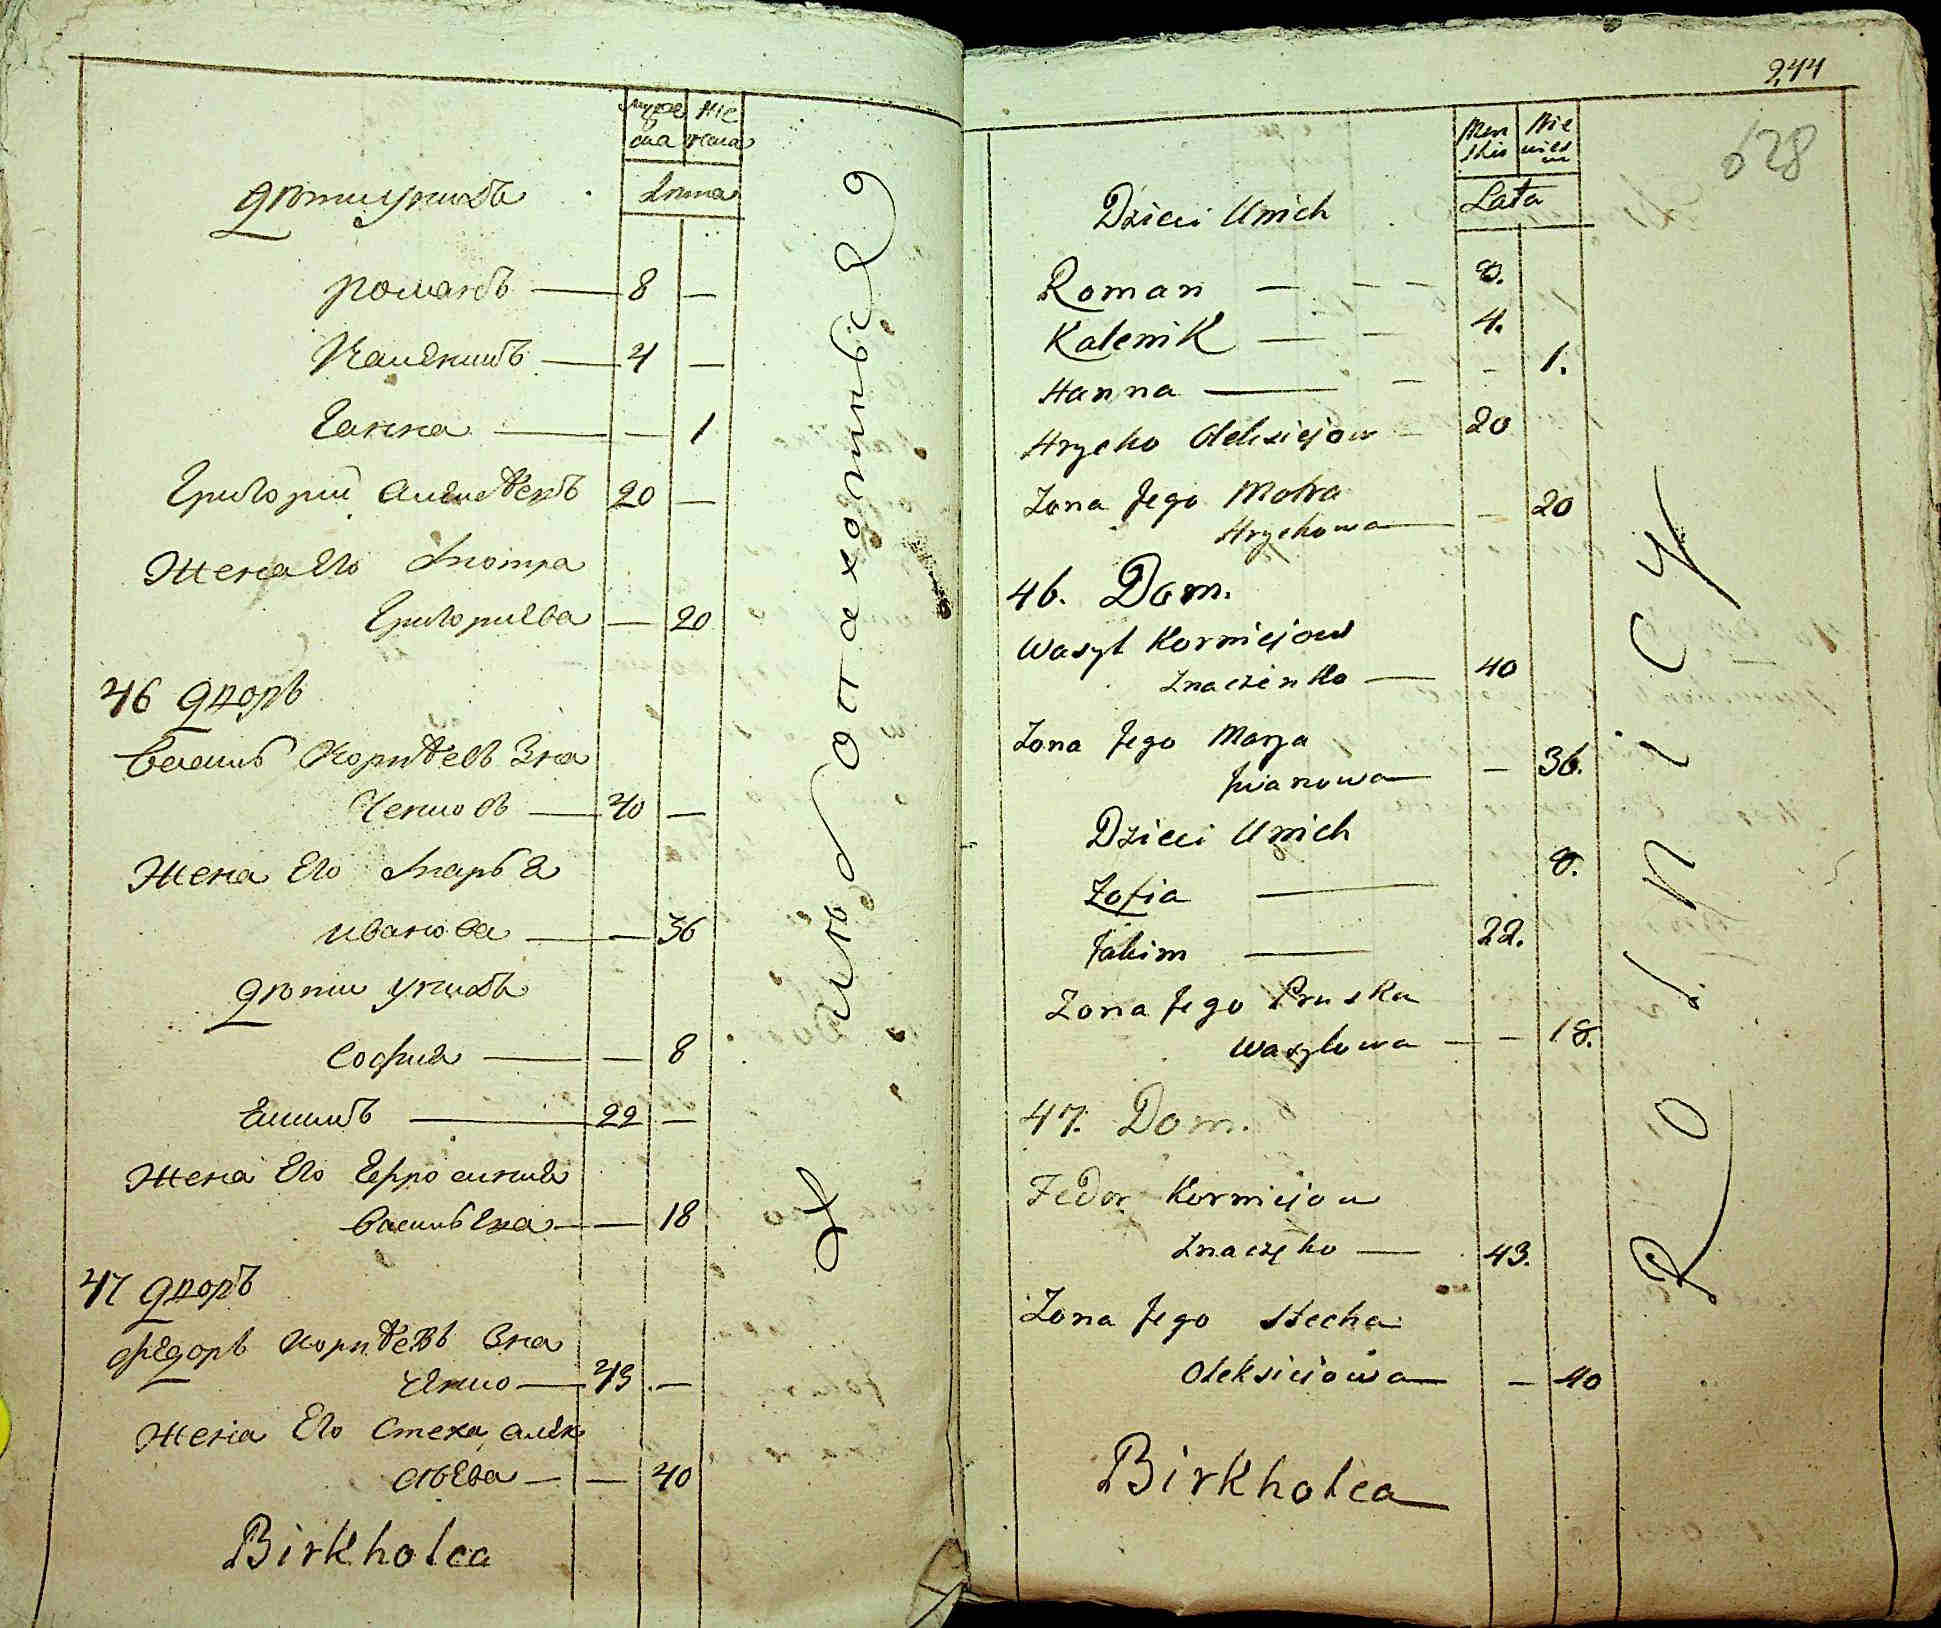 муже Же
ска нска
Лѣта
Дѣти у нихъ
Романъ — 8 —
Каленикъ — 4 —
Ганна — — 1
Григорий Алексѣевъ 20 —
Жена Его Мотра
Григориева — 20
46 Дворъ
Василь Корнѣевъ Зна
ченков — 40 —
Жена Его Марья
Иванова — — 36
Дѣти у нихъ
София — — 8
Екимъ — 22 —
Жена Его Ефросиния
Васильева — — 18
47 Дворъ
Федоръ Корнѣевъ Зна
ченко — 43 —
Жена Его Стеха Алек
сѣева — — 40
Birkholca
244
628
Men Nie
skie wies
Lata
Dzieci Unich
Roman — — — 8.
Kalenik — — 4.
Hanna — — - 1.
Hrycko Oleksiejow — 20
Zona Jego Motra
Hryckowa — - 20
46. Dom.
Wasyl Korniejow
Znaczenko — 40
Zona Jego Marya
Jwanowa — - 36.
Dzieci Unich
Zofia — 8.
Jakim — 22.
Zona Jego Pruska
Wasylowa — - 18.
47. Dom.
Fedor Korniejow
Znaczęko — 43.
Zona Jego Stecha
Oleksiejowa — - 40
Birkholca
Rolnicy